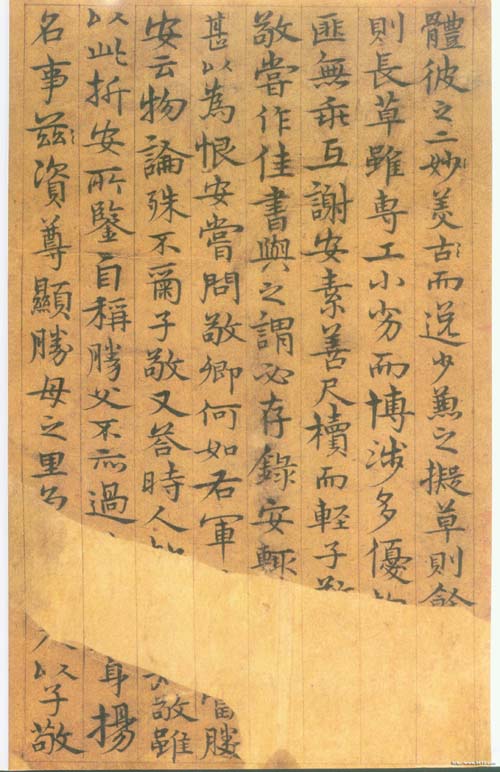 體彼之二妙美古而逸少兼之擬草則餘
則長草雖専工小劣而博涉多優
匪無乖互謝安素善尺櫝而軽子敬
敬嘗作佳書與之謂必存錄安輒
甚以為恨安嘗問敬卿何如右軍 當勝
安云物論殊不爾子敬又荅時人 敬雖
以此折安所鑒自稱勝父不亦過 身揚
名事茲資尊顯勝母之里 入以子敬